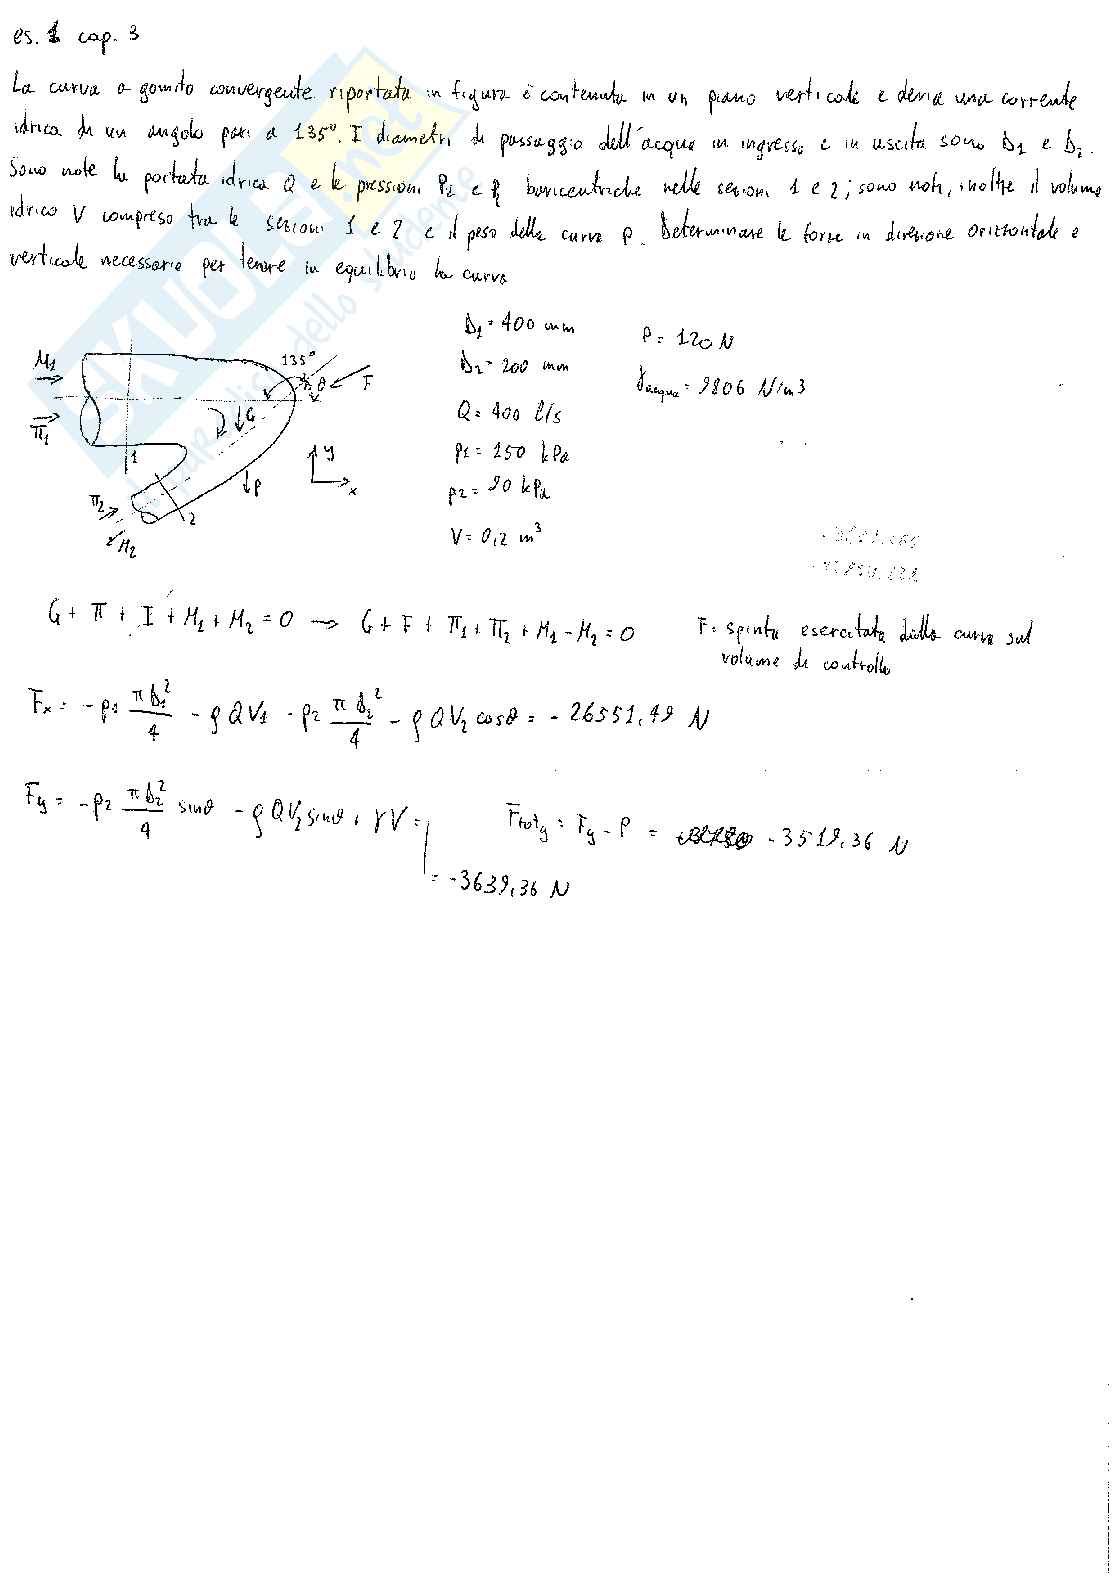 es. 1 cap. 3
La curva a gomito convergente riportata in figura è contenuta in un piano verticale e devia una corrente
idrica di un angolo pari a 135°. I diametri di passaggio dell'acqua in ingresso e in uscita sono D1 e D2.
Sono note la portata idrica Q e le pressioni P1 e P2 baricentriche nelle sezioni 1 e 2; sono noti, inoltre il volume
idrico V compreso tra le sezioni 1 e 2 e il peso della curva P. Determinare le forze in direzione orizzontale e
verticale necessarie per tenere in equilibrio la curva
D1 = 400 mm
P = 120 N
D2 = 200 mm
γacqua = 9806 N/m3
Q = 400 l/s
p1 = 150 kPa
p2 = 90 kPa
V = 0,2 m³
M1
Π1
135°
θ
F
G
P
y
x
1
Π2
M2
2
G + Π + I + M1 + M2 = 0 → G + F + Π1 + Π2 + M1 - M2 = 0
F = spinta esercitata dalla curva sul
volume di controllo
Fx = - p1 πD1²/4 - ρQV1 - p2 πD2²/4 - ρQV2 cosθ = - 26551,49 N
Fy = - p2 πD2²/4 sinθ - ρQV2 sinθ + γV =
= - 3639,36 N
Ftoty = Fy - P = - 3519,36 N
SKUOLA.net
dello studente